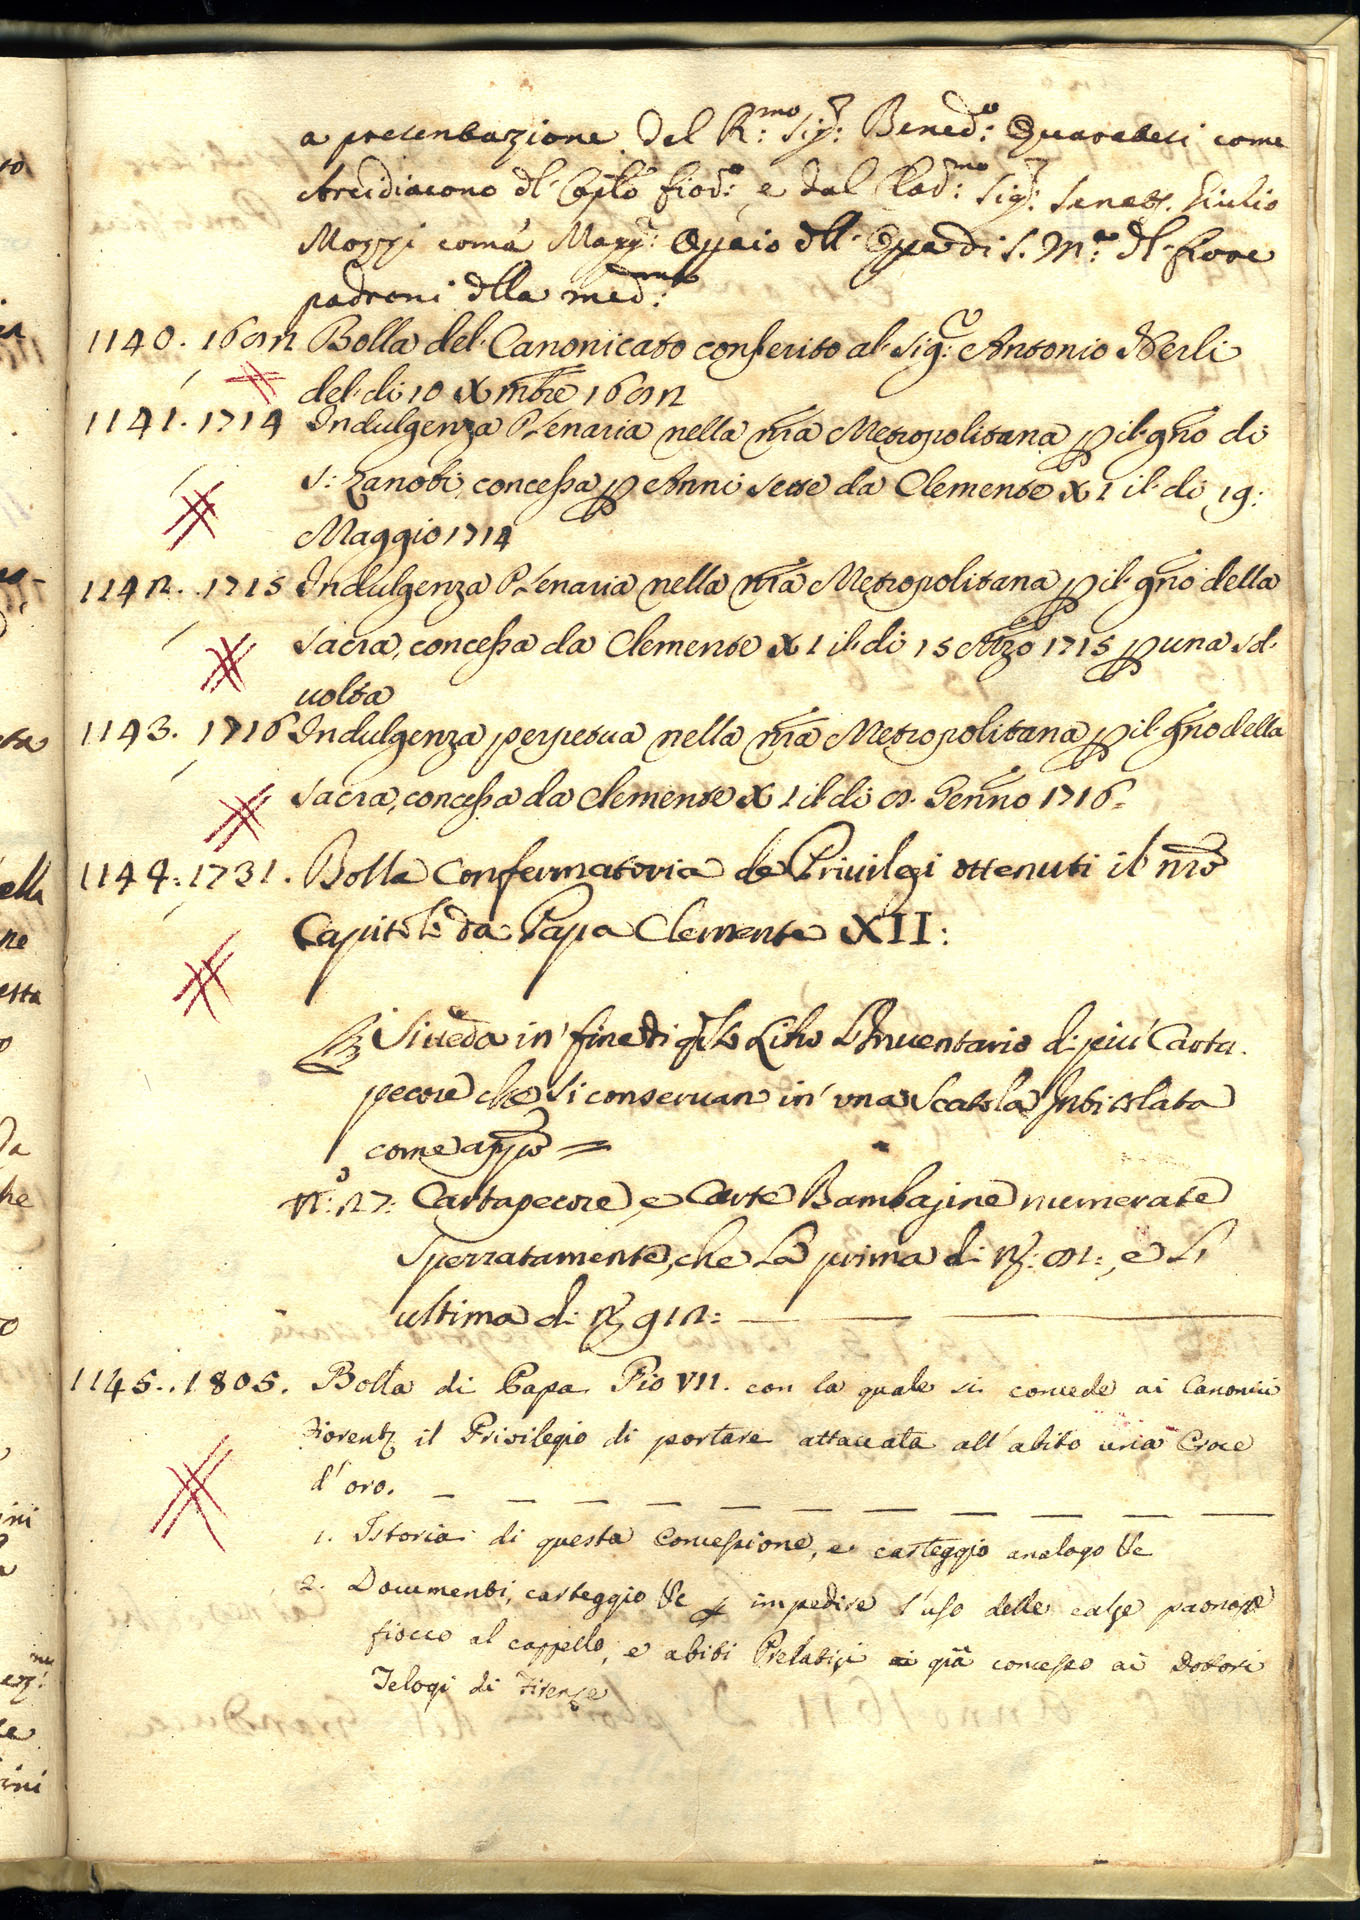 a presentazione del R:mo Sig:r Bened:o Quaratesi come
Arcidiacono dl. Caplo fior:o e dal Clad:mo Sig:r Senatr. Giulio
Mozzi come Magg:r Opaio dll. Opera di S. M:a dl. fiore
padroni dlla med:ma
1140. 1692 Bolla del Canonicato conferito al Sig:r Antonio Nerli
del di 10 Xmbre 1692
1141. 1714 Indulgenza Plenaria nella nra Metropolitana p il gno di
S: Zanobi, concessa p Anni sette da Clemente XI il di 19:
Maggio 1714
1142. 1715 Indulgenza Plenaria nella nra Metropolitana p il gno della
Sacra, concessa da Clemente XI il di 15 Mzo 1715 p una sol
volta
1143. 1716 Indulgenza perpetua nella nra Metropolitana p il gno della
Sacra, concessa da Clemente XI il di 9. Genno 1716.
1144: 1731. Bolla Confermatoria de Privilegi ottenuti il nro
Capitolo da Papa Clemente XII:
Si veda in fine di qsto Libro l'Inventario di più Carta
pecore che si conservan in una Scatola Intitolata
come appo =
N:o 27: Cartapecore, e Carte Bambajine numerate
sperratamente, che la prima di N: 91:, e L
ultima di N 912:
1145.. 1805. Bolla di Papa Pio VII. con la quale si concede ai Canonici
Fiorent. il Privilegio di portare attaccata all'abito una Croce
d'oro.
1. Istoria di questa Concessione, e carteggio analogo &c
2. Documenti, carteggio &c p impedire l'uso delle calze paonazze
fiocco al cappello, e abiti Prelatizi già concesso ai Dottori
Telogi di Firenze